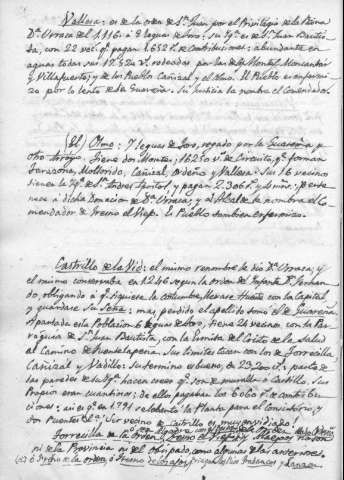 Vallesa: es de la orden de Sn. Juan por el Privilegio de la Reina
Da. Urraca del 1.116: a 8 leguas de Toro: su Yga. es de Sn. Juan Bautis
ta, con 22 vecs. qe. pagan 1.652 rs. de Contribuciones: abundante en
aguas todas sus 1732 v. rodeadas por las de
y Villafuerte; y de los Pueblos Cañizal y el Olmo. El Pueblo es enfermi
zo por lo lento de la Guareña. Su Justicia la nombra el Comendador.
(El) Olmo: 7 leguas de Toro, regado por la Guareña y
otro Arroyo, tiene dos Montes, 16250 v. de Circuito, qe. forman
Tarazona, Mollorido, Cañizal, Ordeño y Vallesa: Sus 16 vecinos
tienen la Yga. de Sn. Andres Apostol, y pagan 2.306 rs. y pertene
nece a dicha Donacion de Da. Urraca; y el Alcalde la nombra el Co
mendador de Fresno el Viejo. Es Pueblo tambien enfermizo.
Castrillo de la Vid: el mismo renombre de dio Da. Urraca; y
el mismo conservaba en 1246 segun la orden del Infante Dn. Fernan
do, obligando a qe. siguiere la costumbre, llevase Hueste con la Capital,
y guardase su Seña: mas, perdido el apellido tomó el de Guareña
Apantada esta Poblacion 6 leguas de Toro, tiene 24 vecinos, con la Par
roquia de Sn. Juan Bautista, con la Ermita del Cristo de la Salud
al Camino de Fuentelapeña. Sus limites tocan con los de Torrecilla,
Cañizal y Vadillo: su termino es bueno, de 23.200 v.: parte de
las paredes de su Yga. hacen creer qe. son de muralla o Castillo. Sus
Propios eran cuantiosos; de ellos pagaban los 6060 rs. de contribu
ciones; asi es qe. en 1.791 se levantó la Planta para el Consistorio, y
dos Puentes. Ser vecino de Castrillo es muy envidiado;
Torrecilla de la Orden, Fresno el Viejo, no son
ni de la Provincia ni del obispado, como algunas de las anteriores.